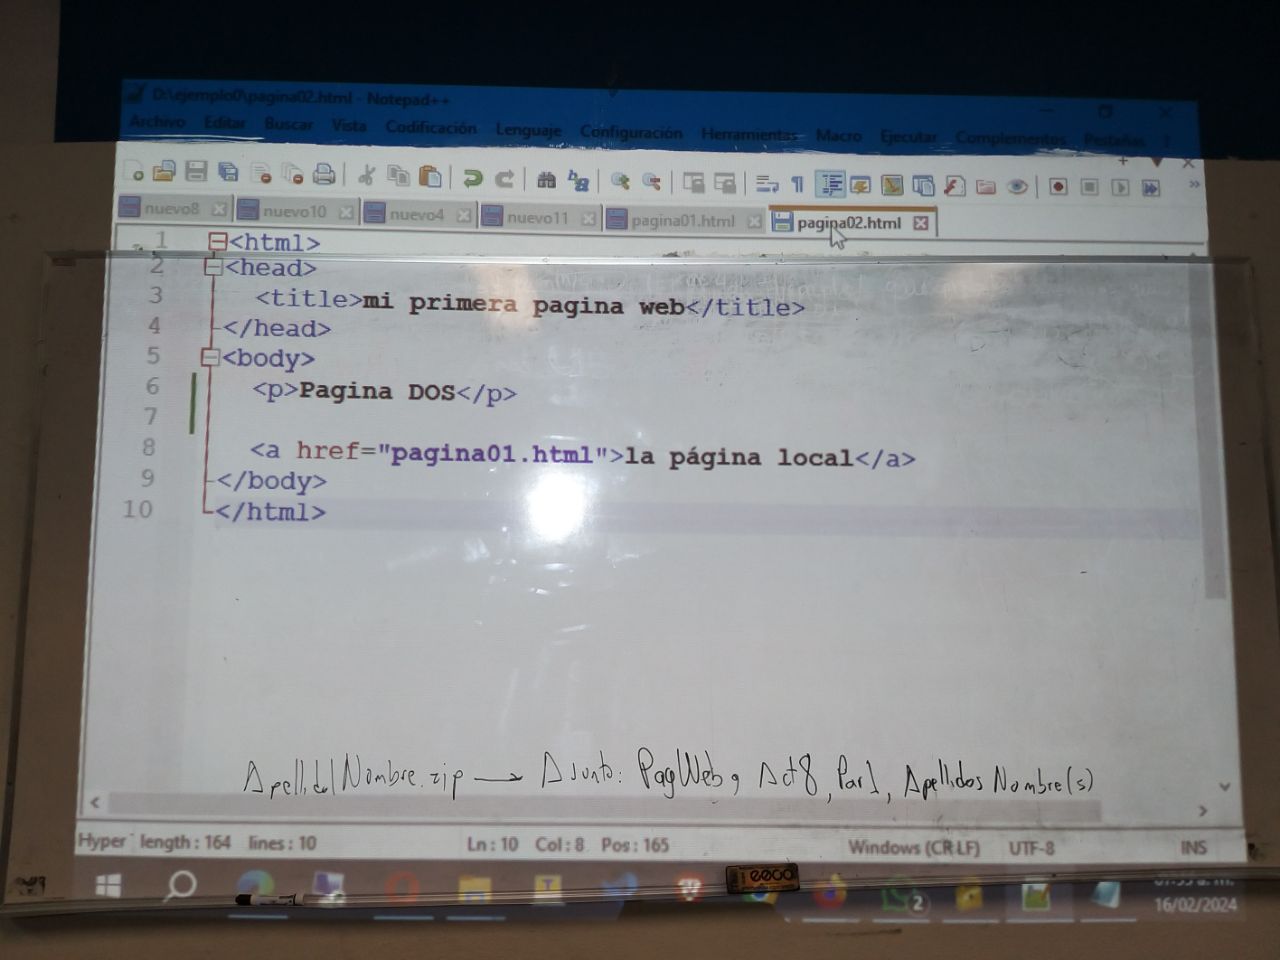 D:\ejemplo0\pagina02.html - Notepad++
Archivo Editar Buscar Vista Codificación Lenguaje Configuración Herramientas Macro Ejecutar Complementos Pestañas ?
nuevo8 nuevo10 nuevo4 nuevo11 pagina01.html pagina02.html
1 <html>
2 <head>
3 <title>mi primera pagina web</title>
4 </head>
5 <body>
6 <p>Pagina DOS</p>
7
8 <a href="pagina01.html">la página local</a>
9 </body>
10 </html>
Apellido1Nombre.zip → Asunto: PagWeb, Act8, Par1, Apellidos Nombre(s)
Hyper length: 164 lines: 10 Ln: 10 Col: 8 Pos: 165 Windows (CR LF) UTF-8 INS
2
16/02/2024